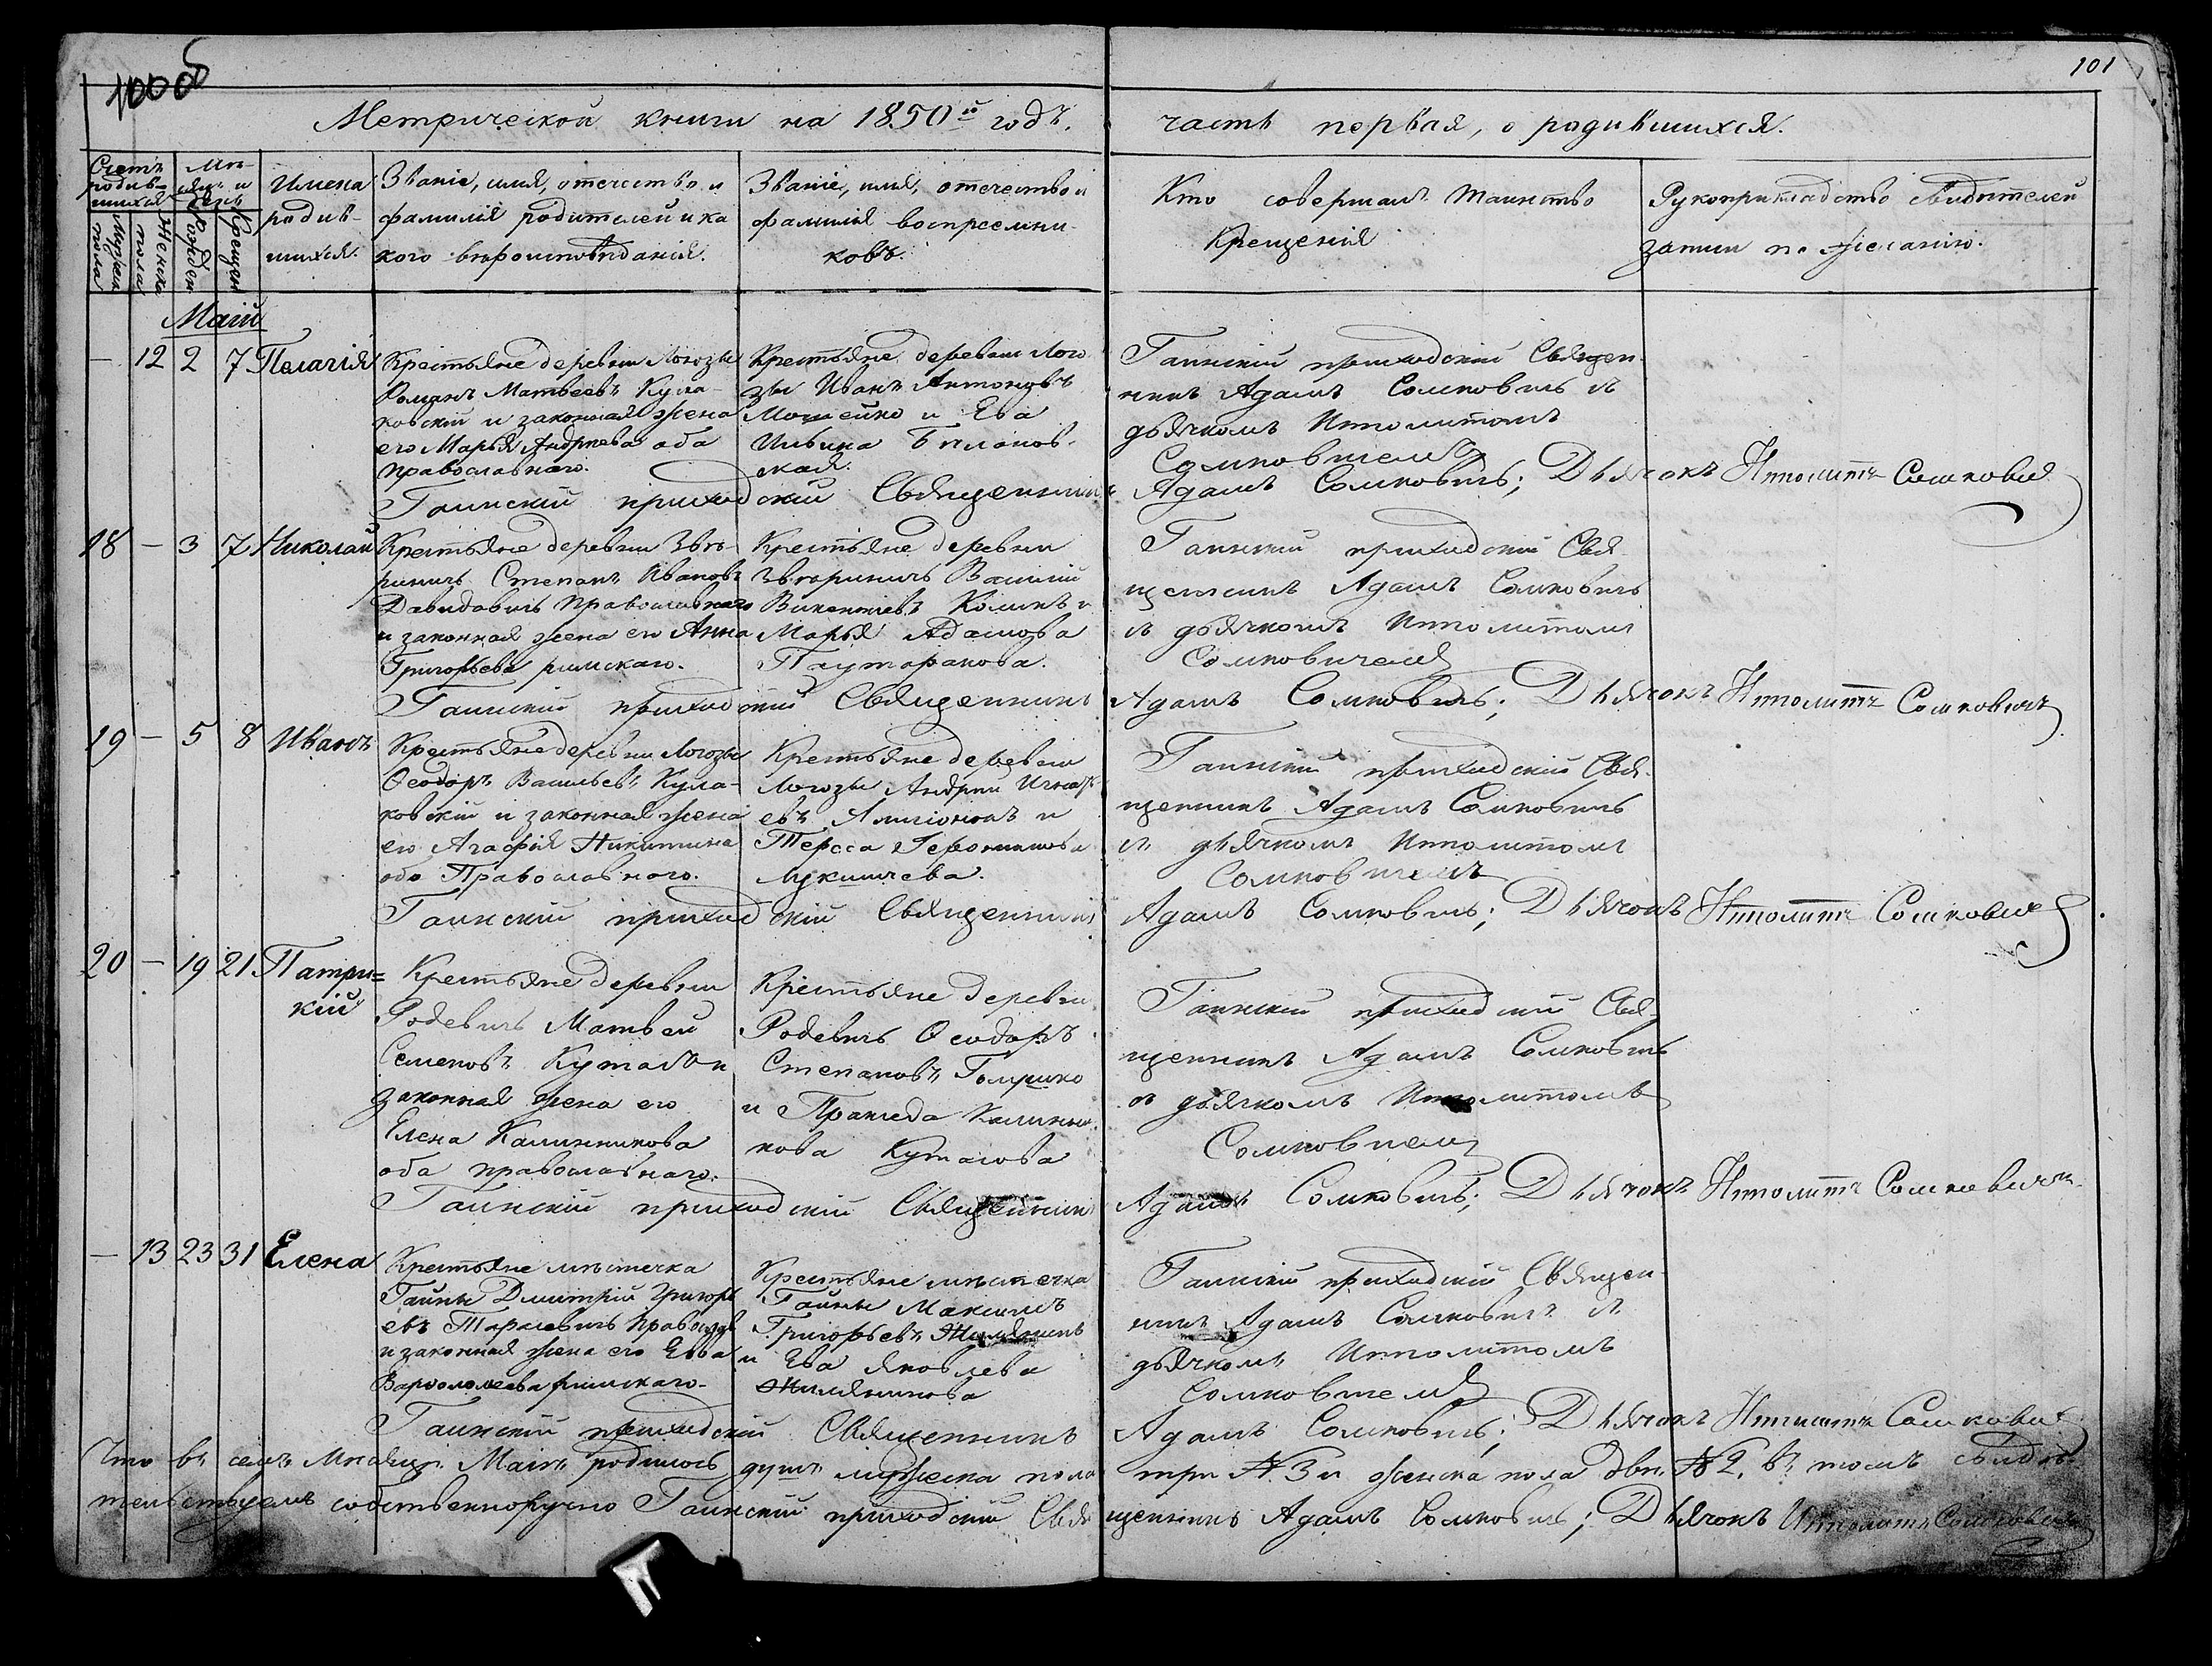 100об
101
Метрической книги на 1850й годъ,
часть первая, о родившихся.
Счетъ родив-шихся
Мѣ-сяцъ и день
Имена родив-шихся.
Званіе, имя, отечество и
фамилія родителей и ка
кого вѣроисповѣданія.
Званіе, имя, отечество и
фамилія воспреемни-
ковъ.
Кто совершалъ таинство
Крещенія
Рукоприкладство свидѣтелей
записи по желанію.
Мужеска пола
Женска пола
Рожден
Крещен
Маій
— 12 2 7 Пелагія
Крестьяне деревни Логозы
Романъ Матвеевъ Кула-
ковскій и законная жена
его Марья Андреева оба
православнаго.
Крестьяне деревни Лого
зы Иванъ Антоновъ
Мошейко и Ева
Ильина
ская.
Гаинскій приходскій Священ-
никъ Адамъ Сомковичъ съ
дьячкомъ Ипполитомъ
Сомковичемъ
Гаинскій приходскій Священникъ Адамъ Сомковичъ; Дьячокъ Ипполитъ Сомкович
18 — 3 7 Николай
Крестьяне деревни Звѣ-
риничъ Степанъ Ивановъ
Давидовичъ православнаго
и законная жена его Анна
Григорьева римскаго.
Крестьяне деревни
Звѣриничъ Василій
Викентіевъ и
Марья Адамова
Гаинскій приходскій Свя-
щенникъ Адамъ Сомковичъ
съ дьячкомъ Ипполитомъ
Сомковичемъ
Гаинскій приходскій Священникъ Адамъ Сомковичъ; Дьячокъ Ипполитъ Сомковичъ
19 — 5 8 Иванъ
Крестьяне деревни Логозы
Ѳеодоръ Васильевъ Кула-
ковскій и законная жена
его Агафія Никитина
оба Православнаго.
Крестьяне деревни
Логозы Андрей Игнать
евъ и
Тереса
Гаинскій приходскій Свя-
щенникъ Адамъ Сомковичъ
съ дьячкомъ Ипполитомъ
Сомковичемъ
Гаинскій приходскій Священникъ Адамъ Сомковичъ; Дьячокъ Ипполитъ Сомкович
20 — 19 21 Патри=
кій
Крестьяне деревни
Родевичъ Матвей
Семеновъ и
законная жена его
Елена Калинникова
оба православнаго.
Крестьяне деревни
Родевичъ Ѳеодоръ
Степановъ
и Праксeда Калинни-
кова
Гаинскій приходскій Свя-
щенникъ Адамъ Сомковичъ
съ дьячкомъ Ипполитомъ
Сомковичемъ
Гаинскій приходскій Священникъ Адамъ Сомковичъ; Дьячокъ Ипполитъ Сомковичъ.
— 13 23 31 Елена
Крестьяне мѣстечка
Гайны Дмитрій Григорь
евъ Тарасевичъ православ
и законная жена его Евва
Варѳоломеева римскаго.
Крестьяне мѣстечка
Гайны Максимъ
Григорьевъ
и Ева Яковлева
Гаинскій приходскій Священ-
никъ Адамъ Сомковичъ съ
дьячкомъ Ипполитомъ
Сомковичемъ
Гаинскій приходскій Священникъ Адамъ Сомковичъ; Дьячокъ Ипполитъ Сомкович
Что въ семъ Мѣсяцѣ Маіѣ родилось душъ мужеска пола три № 3 и женска пола двѣ № 2. въ томъ свидѣ-
тельствуемъ собственноручно Гаинскій приходскій Священникъ Адамъ Сомковичъ; Дьячокъ Ипполитъ Сомковичъ